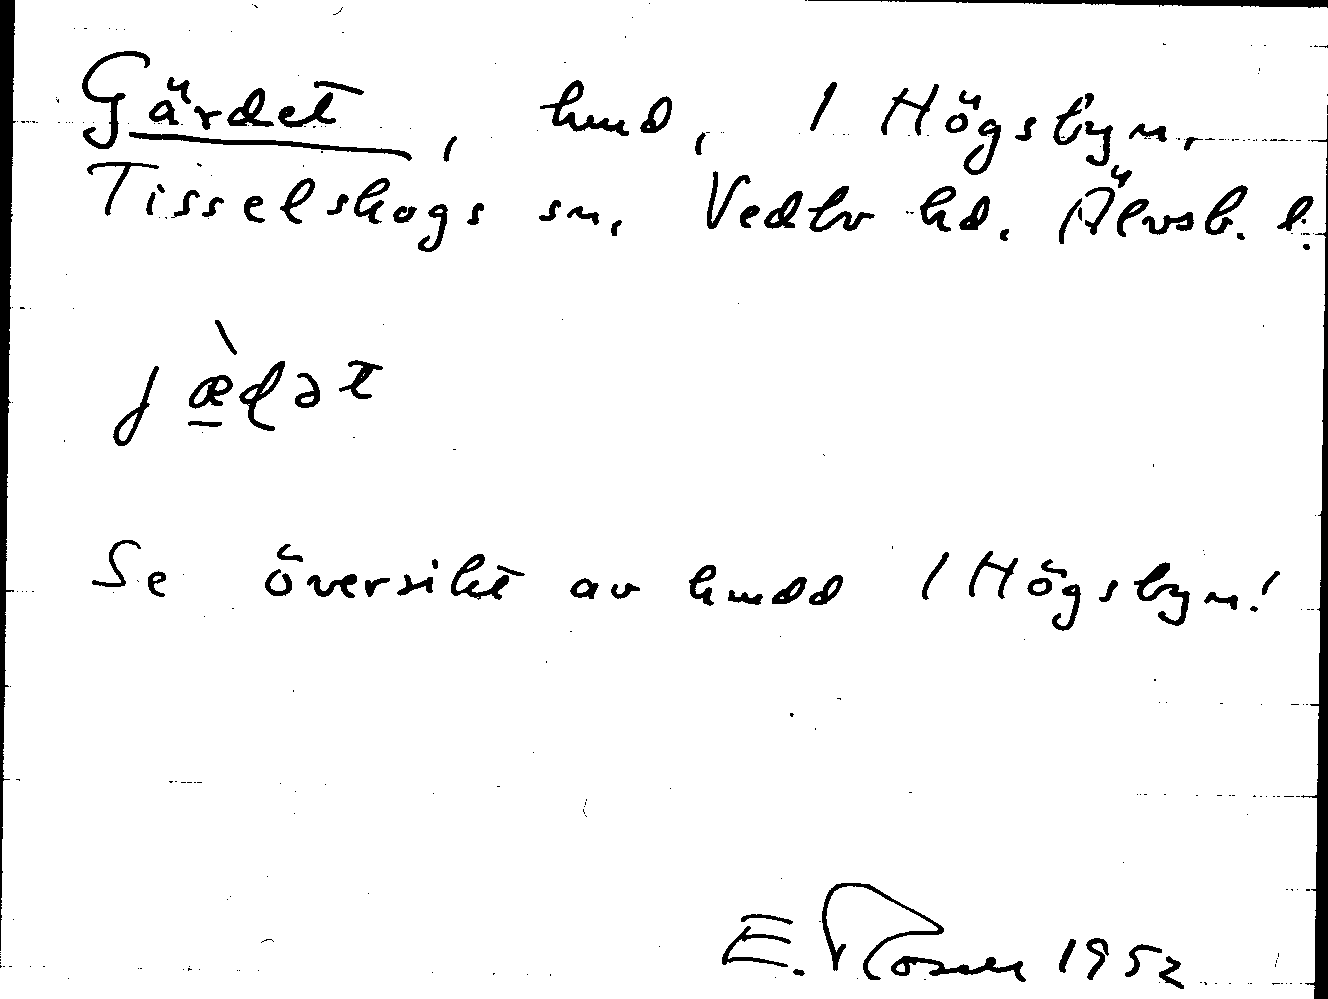 Gärdet, hmd, 1 Högsbyn,
Tisselskogs sn, Vedbo hd. Älvsb. l.
jæ̀ḍət
Se översikt av hmdd 1 Högsbyn!
E. Rosen 1952